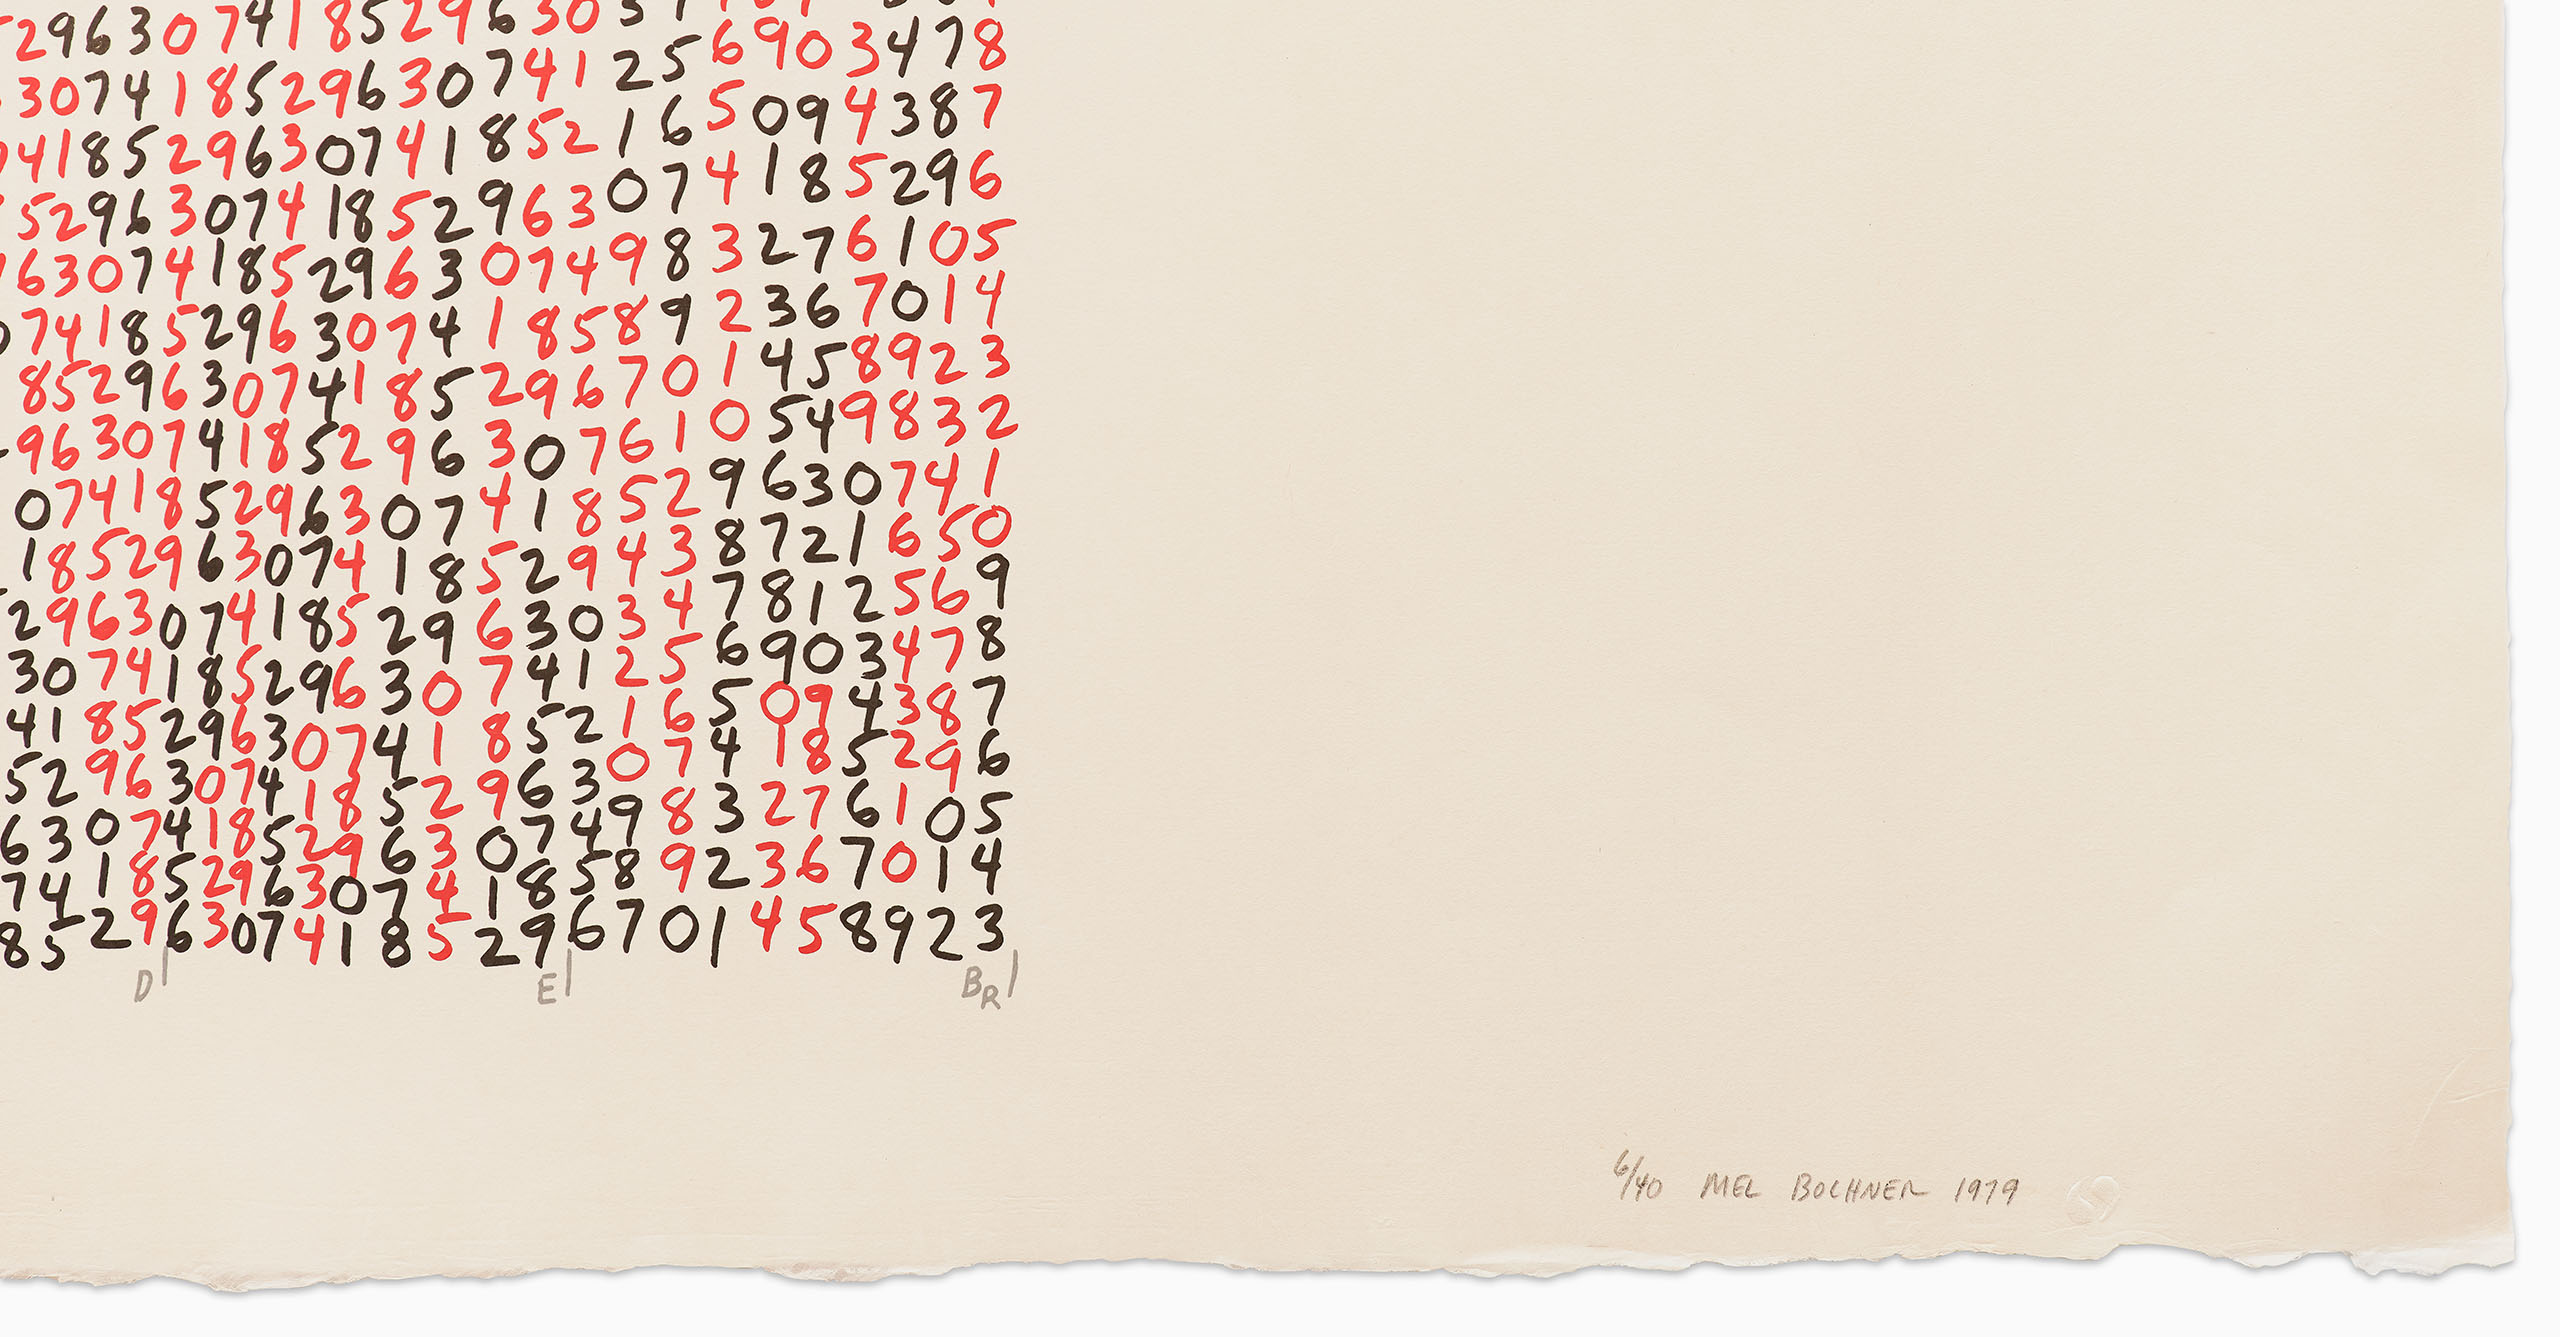 296307418529630
307418529630741256903478
418529630741852165094387
529630741852963074185296
630741852963074983276105
741852963074185892367014
852963074185296701458923
963074185296307610549832
074185296307418529630741
185296307418529438721650
296307418529630347812569
307418529630741256903478
418529630741852165094387
529630741852963074185296
630741852963074983276105
741852963074185892367014
852963074185296701458923
D E BR
6/40 MEL BOCHNER 1979